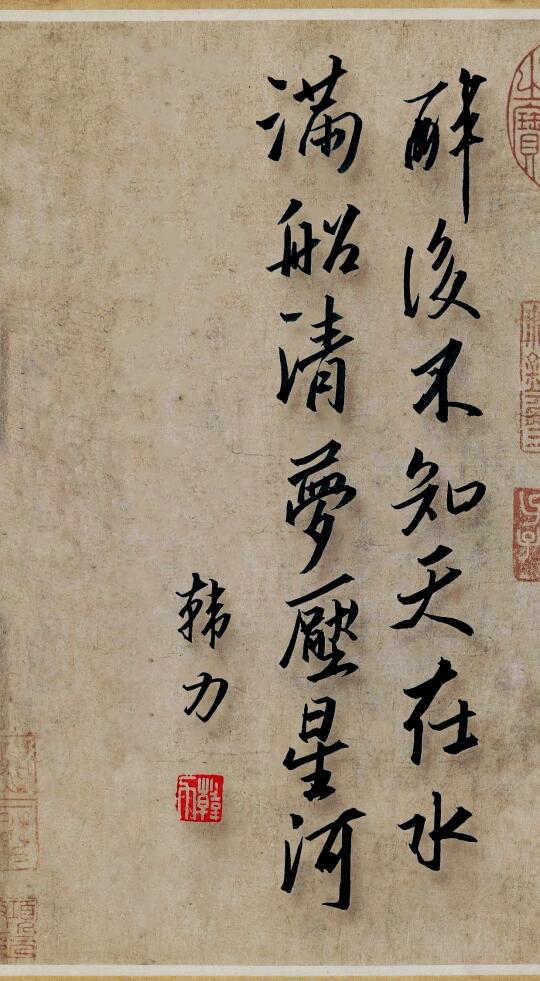 醉後不知天在水
滿船清夢壓星河
韩力